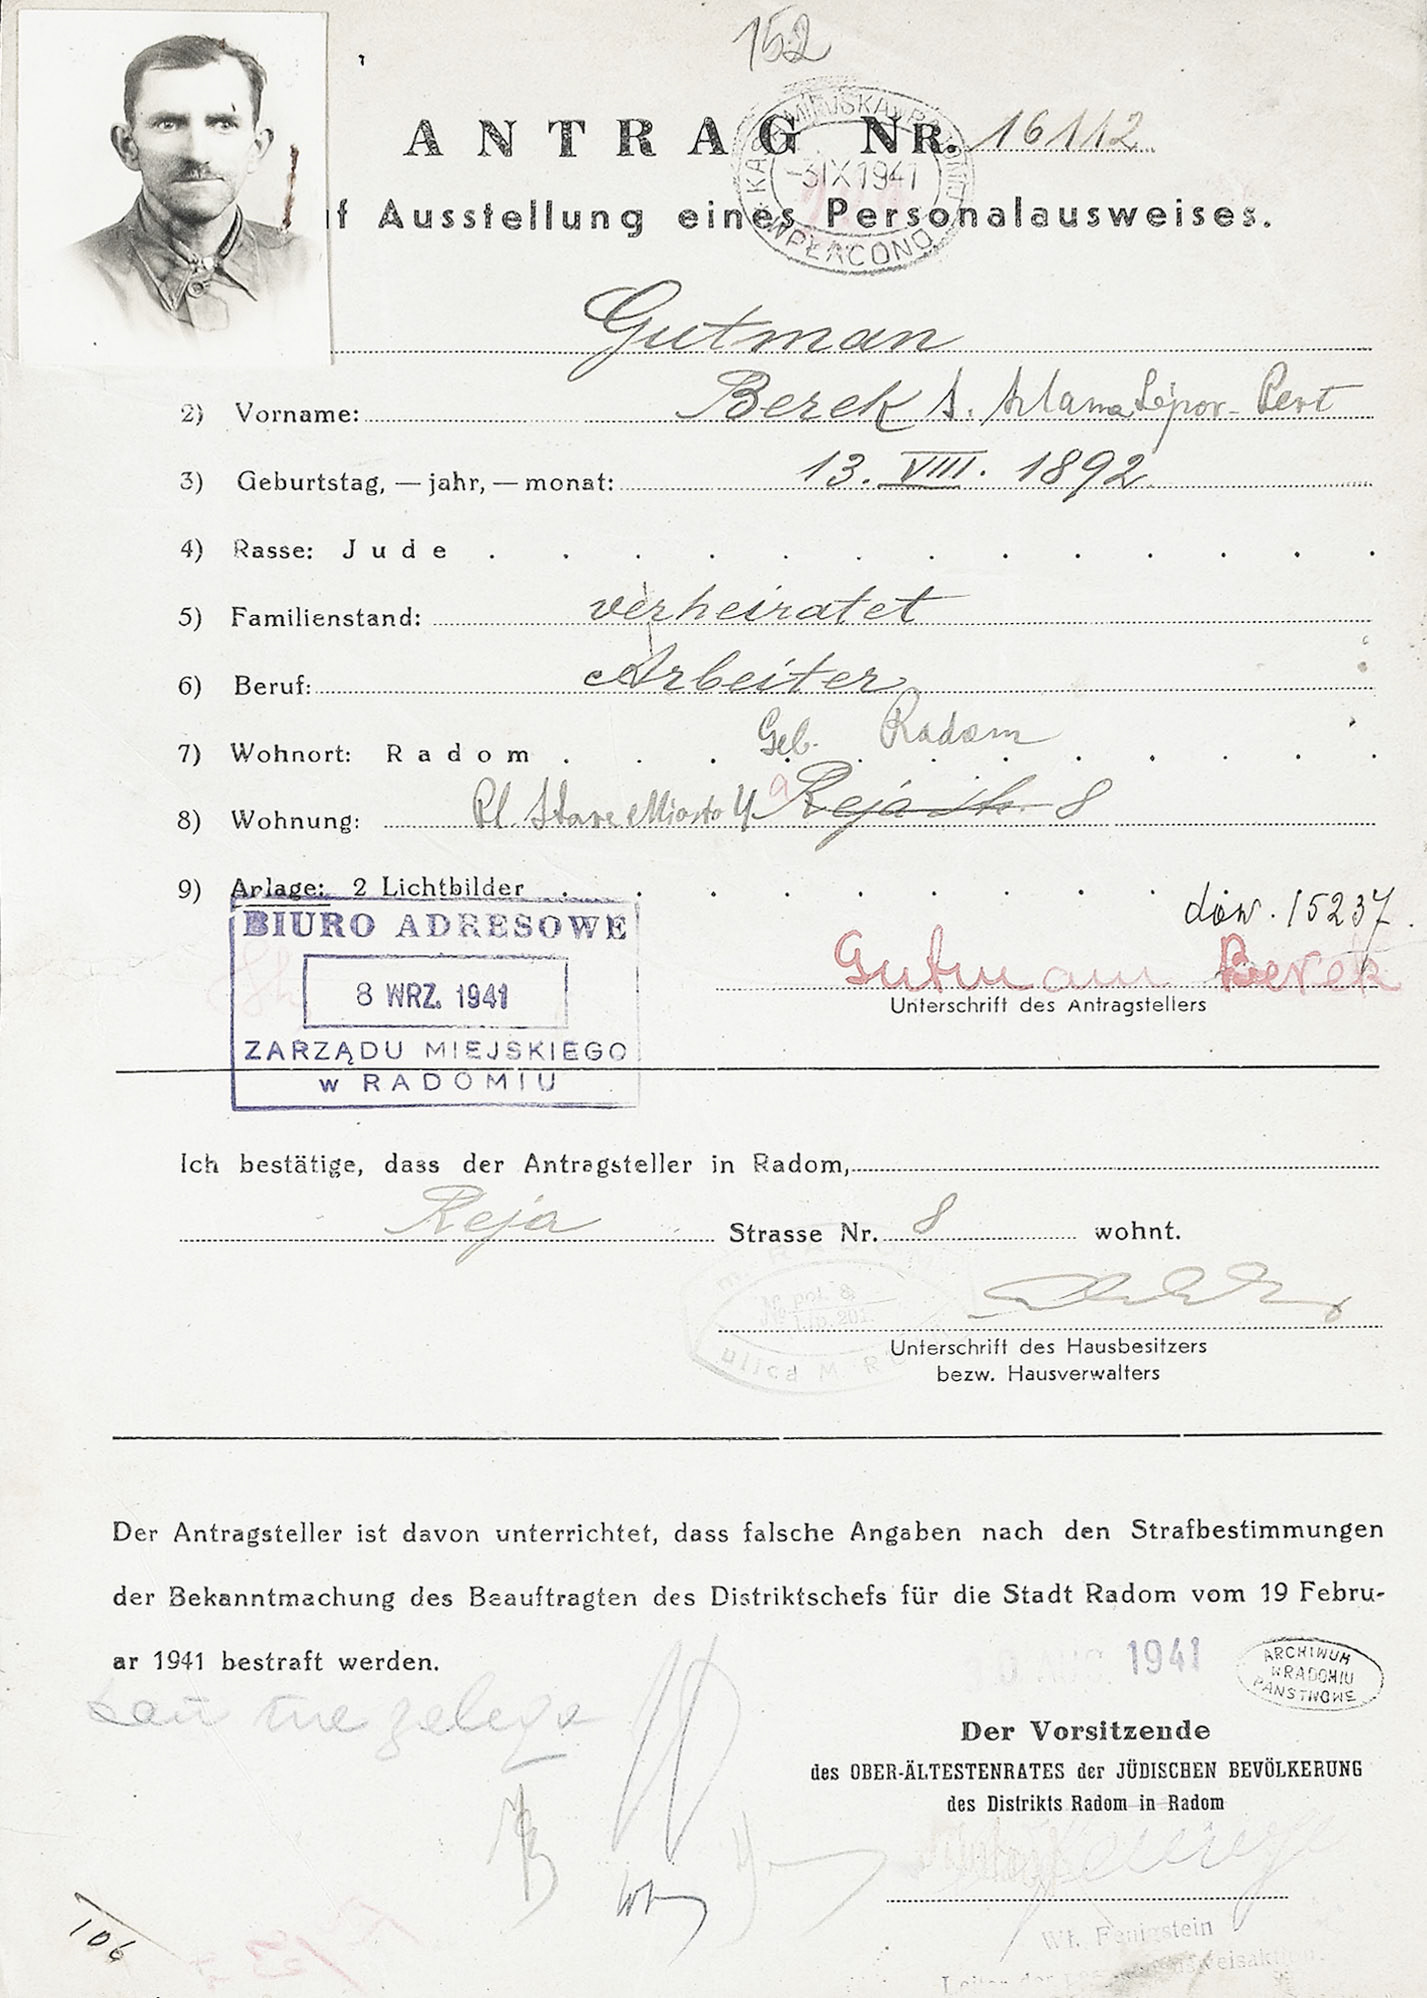 152
ANTRAG NR. 16112
KASA MIEJSKA W RADOMIU
-3 IX 1941
WPŁACONO
f Ausstellung eines Personalausweises.
Gutman
2) Vorname: Berek
3) Geburtstag, — jahr, — monat: 13. VIII. 1892
4) Rasse: Jude
5) Familienstand: verheiratet
6) Beruf: Arbeiter
Geb. Radom
7) Wohnort: Radom
8) Wohnung: Pl. Stare Miasto 4 a Reja 8
9) Anlage: 2 Lichtbilder
dow. 15237
BIURO ADRESOWE
8 WRZ. 1941
ZARZĄDU MIEJSKIEGO
w RADOMIU
Gutman Berek
Unterschrift des Antragstellers
Ich bestätige, dass der Antragsteller in Radom,
Reja Strasse Nr. 8 wohnt.
Unterschrift des Hausbesitzers
bezw. Hausverwalters
Der Antragsteller ist davon unterrichtet, dass falsche Angaben nach den Strafbestimmungen
der Bekanntmachung des Beauftragten des Distriktschefs für die Stadt Radom vom 19 Febru-
ar 1941 bestraft werden.
1941
ARCHIWUM
W RADOMIU
PAŃSTWOWE
Der Vorsitzende
des OBER-ÄLTESTENRATES der JÜDISCHEN BEVÖLKERUNG
des Distrikts Radom in Radom
W. Fenigstein
106